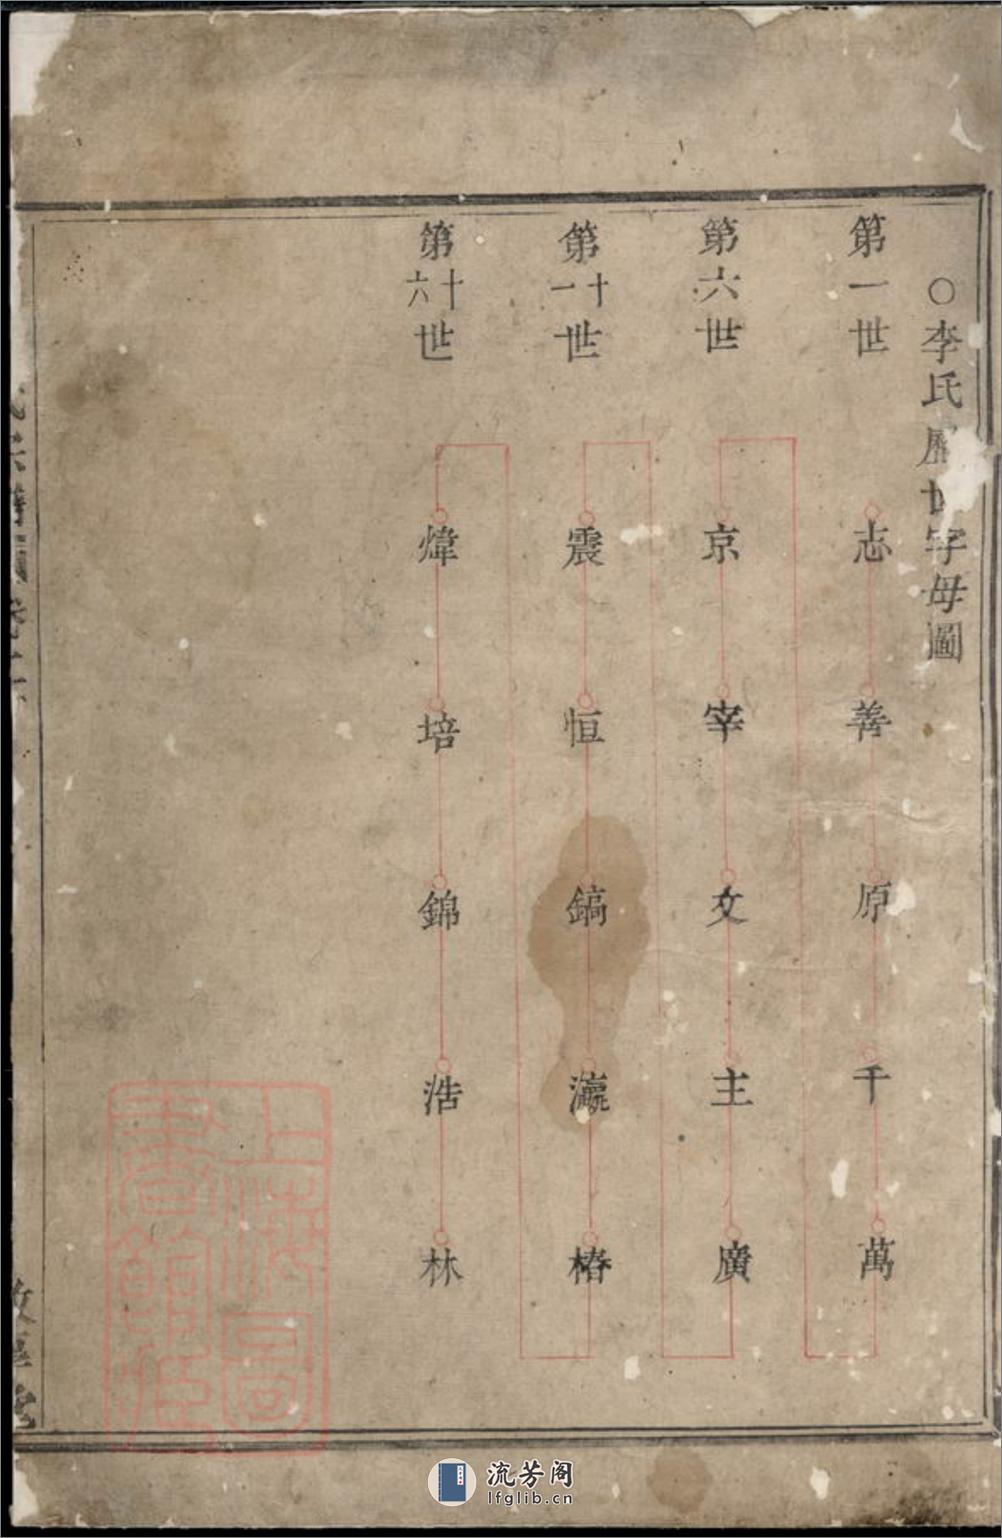 ○李氏歷世字母圖
第一世 志 善 原 千 萬
第六世 京 宰 文 主 廣
第十一世 震 恒 鎬 瀛 椿
第十六世 煒 培 錦 浩 林
上海圖書館藏
流芳阁
lfglib.cn